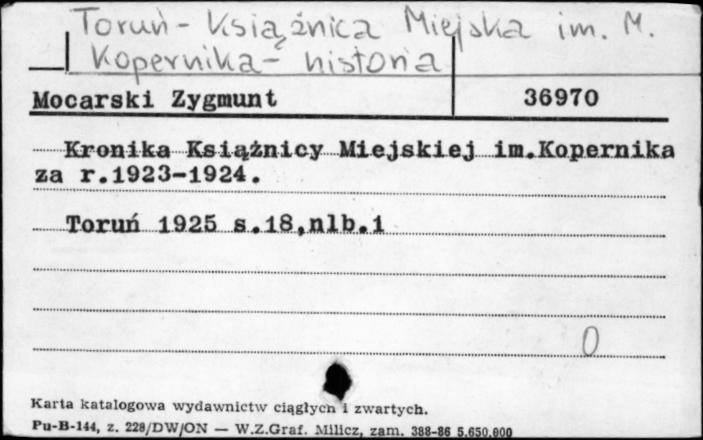 Toruń - Książnica Miejska im. M.
Kopernika - historia
Mocarski Zygmunt 36970
Kronika Książnicy Miejskiej im.Kopernika
za r.1923-1924.
Toruń 1925 s.18,nlb.1
0
Karta katalogowa wydawnictw ciągłych i zwartych.
Pu-B-144, z. 228/DW/ON — W.Z.Graf. Milicz, zam. 388-86 5.650.000